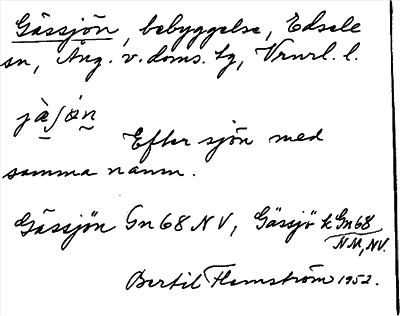 Gässjön, bebyggelse, Edsele
sn, Ång. v. doms. tg, Vrnrl. l.
jà̱ʃøn̰
Efter sjön med
samma namn.
Gässjön Gn 68 NV, Gässjö k Gn 68
NM, NV.
Bertil Flemström 1952.